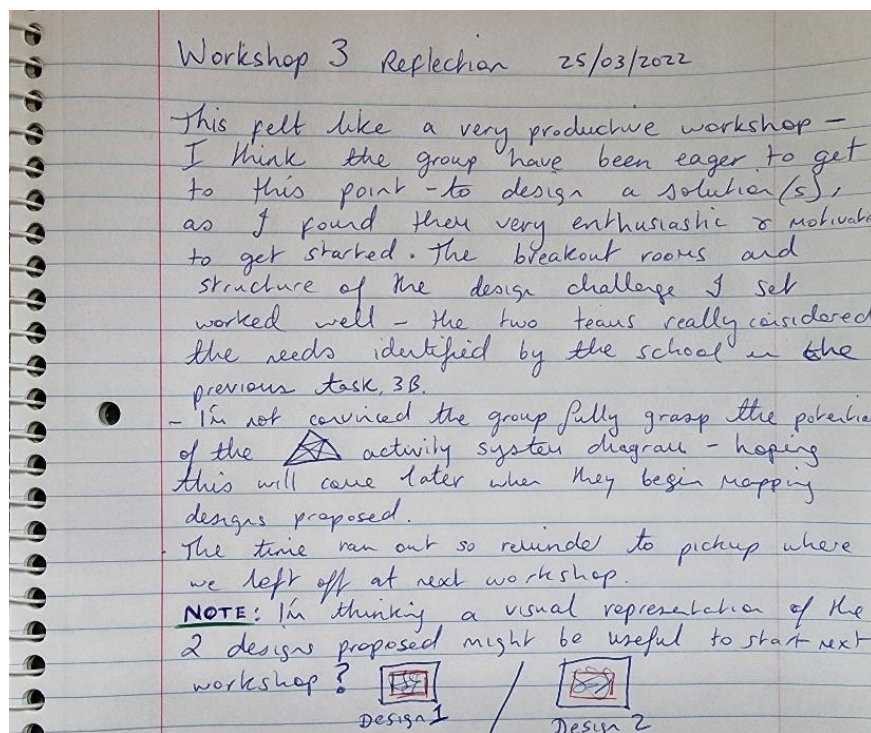 Workshop 3 Reflection 25/03/2022
This felt like a very productive workshop -
I think the group have been eager to get
to this point - to design a solution(s),
as I found them very enthusiastic & motivate
to get started. The breakout rooms and
structure of the design challenge I set
worked well - the two teams really considered
the needs identified by the school in the
previous task, 3B.
- I'm not convinced the group fully grasp the potentia
of the activity system diagram - hoping
this will come later when they begin mapping
designs proposed.
. The time ran out so reminder to pickup where
we left off at next workshop.
NOTE: I'm thinking a visual representation of the
2 designs proposed might be useful to start next
workshop?
Design 1 / Design 2